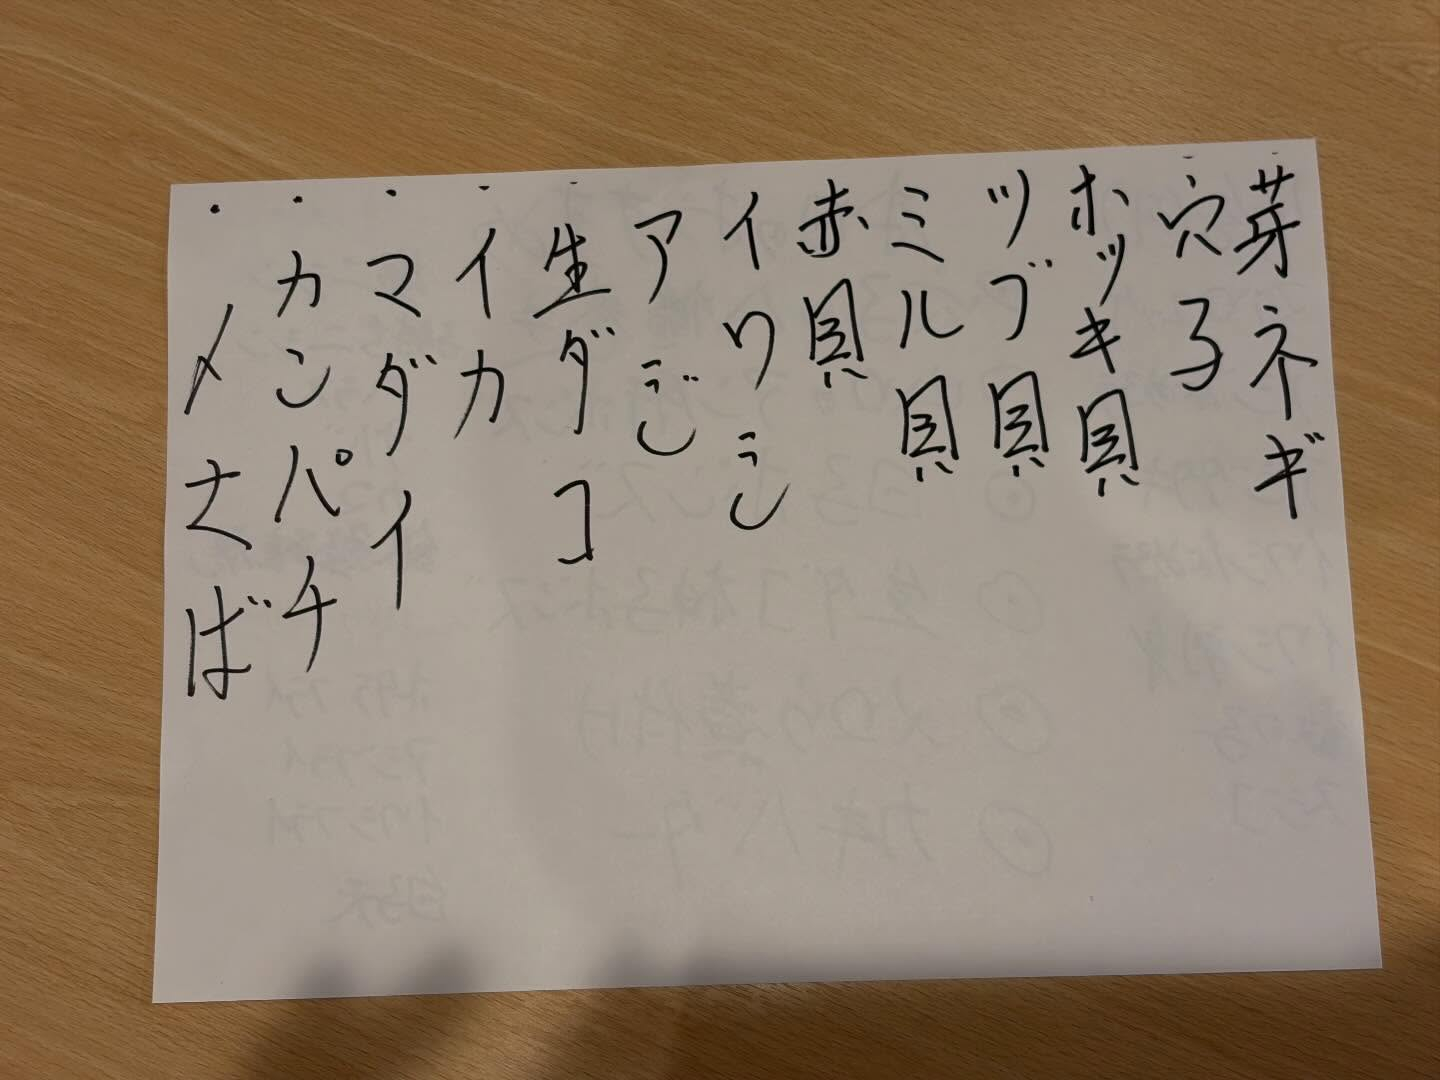 芽ネギ
穴子
ホッキ貝
ツブ貝
ミル貝
赤貝
イワシ
アジ
生ダコ
イカ
マダイ
カンパチ
〆さば